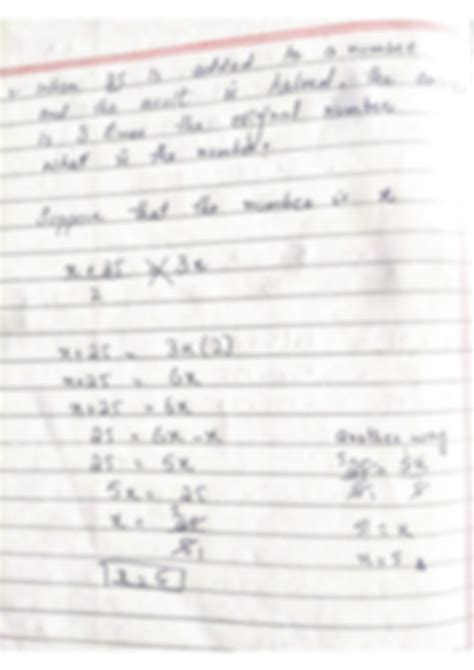 when 25 is added to a number
and the result is halved, the
is 3 times the original number
what is the number?
Suppose that the number is x
x+25 3x
2
x+25 = 3x(2)
x+25 = 6x
x+25 = 6x
25 = 6x-x
25 = 5x
5x = 25
x = 25
5
x = 5
another way
25 = 5x
5 5
5 = x
x = 5